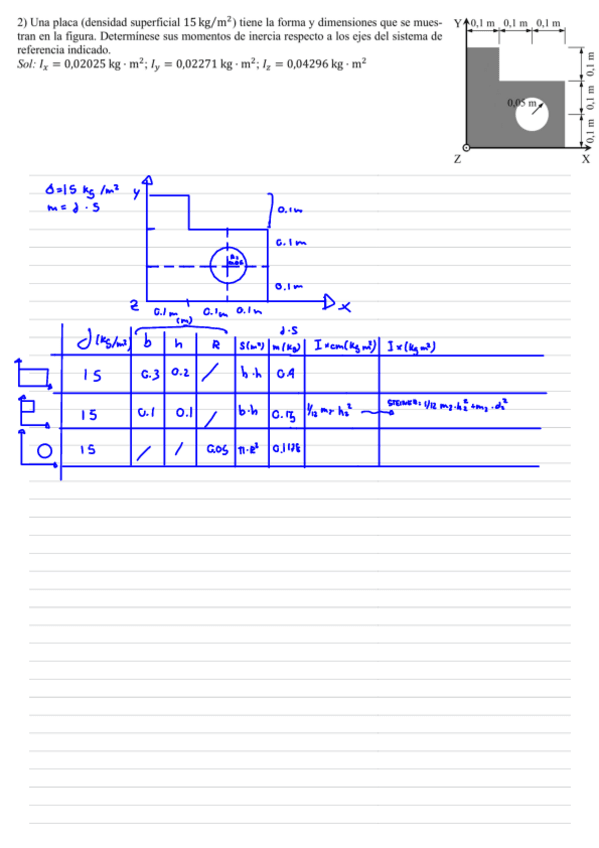 2) Una placa (densidad superficial 15 kg/m²) tiene la forma y dimensiones que se mues-
tran en la figura. Determínese sus momentos de inercia respecto a los ejes del sistema de
referencia indicado.
Sol: Iₓ = 0,02025 kg · m²; I_y = 0,02271 kg · m²; I_z = 0,04296 kg · m²
Y 0,1 m 0,1 m 0,1 m
0,05 m
0,1 m 0,1 m 0,1 m
Z X
δ=15 kg/m²
m = δ · S
Y
0.1m
0.1m
0.1m
Z 0.1m 0.1m 0.1m X
(m)
δ·S
δ (kg/m²) b h R S(m²) m(kg) Ixcm(kg m²) Ix(kg m²)
15 0.3 0.2 / b·h 0.9
15 0.1 0.1 / b·h 0.15 1/12 m₂ h₂² → STEINER: 1/12 m₂·h₂²+m₂·d₂²
15 / / 0.05 π·R²